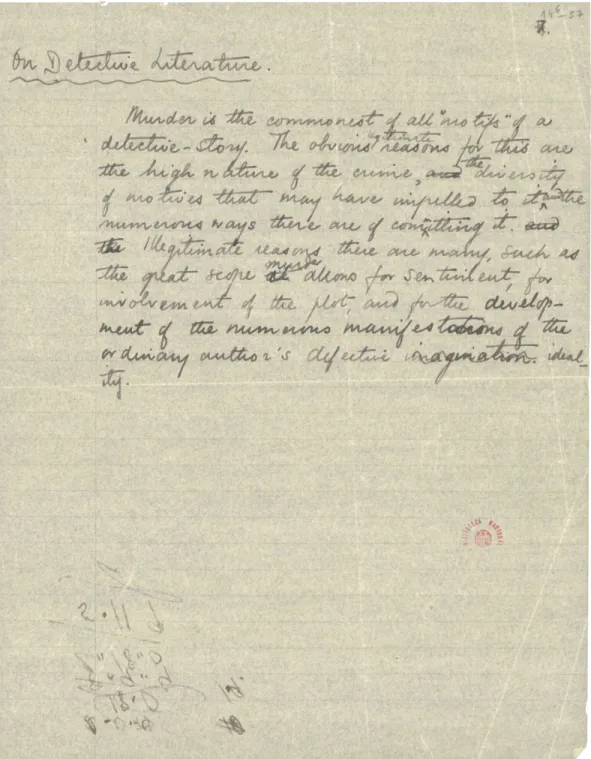 14⁶-57
1.
On Detective Literature.
Murder is the commonest of all "motifs" of a
detective-story. The obvious legitimate reasons for this are
the high nature of the crime, and the diversity
of motives that may have impelled to it and the
numerous ways there are of committing it. and
the Illegitimate reasons there are many, such as
the great scope it murder allows for sentiment, for
involvement of the plot, and for the develop-
ment of the numerous manifestations of the
ordinary author's defective imagination. ideal-
ity.
BIBLIOTECA NACIONAL
12.